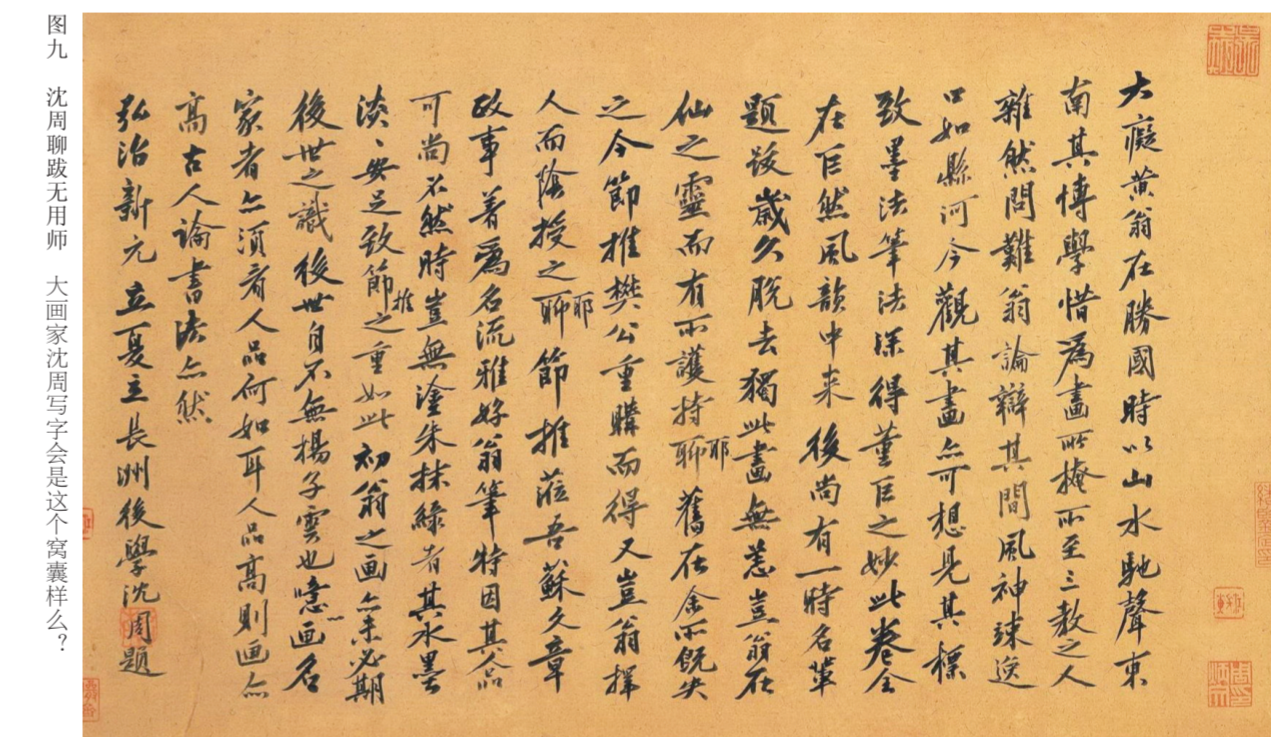 大癡黃翁在勝國時以山水馳聲東
南其博學惜為畫所掩所至三教之人
雜然問難翁論辯其間風神竦逸
口如懸河今觀其畫亦可想見其標
致墨法筆法深得董巨之妙此卷全
在巨然風韻中来後尚有一時名輩
題跋歲久脫去獨此畫無恙豈翁在
仙之靈而有所護持聊舊在余所既失
耶
之今節推樊公重購而得又豈翁擇
人而陰授之聊節推蒞吾蘇文章
耶
政事著為名流雅好翁筆特因其品
可尚不然時豈無塗朱抹綠者其水墨
淡、安足致節之重如此初翁之画亦未必期
推
後世之識後世自不無揚子雲也噫画名
家者亦須看人品何如耳人品高則画亦
高古人論書法亦然
弘治新元立夏立長洲後學沈周題
图九 沈周聊跋无用师 大画家沈周写字会是这个窝囊样么？